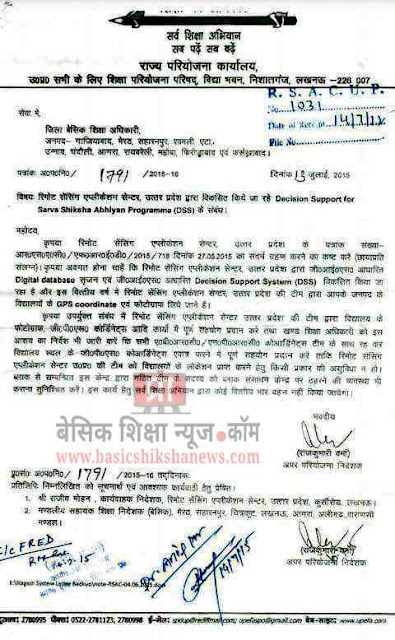 सर्व शिक्षा अभियान
सब पढ़ें सब बढ़ें
राज्य परियोजना कार्यालय,
उ०प्र० सभी के लिए शिक्षा परियोजना परिषद्, विद्या भवन, निशातगंज, लखनऊ -226 007
R. S. A. C. U. P.
No. 1031
Date of Receipt 14/7/15
File No
सेवा में,
जिला बेसिक शिक्षा अधिकारी,
जनपद- गाजियाबाद, मेरठ, सहारनपुर, शामली एटा,
उन्नाव, चंदौली, आगरा, रायबरेली, महोबा, फिरोजाबाद एवं फर्रूखाबाद।
पत्रांकः अ०प०नि०/ 1791 /2015-16 दिनांक 13 जुलाई, 2015
विषयः रिमोट सेंसिंग एप्लीकेशन सेन्टर, उत्तर प्रदेश द्वारा विकसित किये जा रहे Decision Support for
Sarva Shiksha Abhiyan Programme (DSS) के संबंध।
महोदय,
कृपया रिमोट सेंसिंग एप्लीकेशन सेन्टर, उत्तर प्रदेश के पत्रांक संख्या-
/2015/718 दिनांक 27.05.2015 का संदर्भ ग्रहण करने का कष्ट करें (छायाप्रति
संलग्न)। कृपया अवगत होना चाहें कि रिमोट सेंसिंग एप्लीकेशन सेन्टर, उत्तर प्रदेश द्वारा जी०आई०एस० आधारित
Digital database सृजन एवं जी०आई०एस० आधारित Decision Support System (DSS) विकसित किया जा
रहा है और इस वित्तीय वर्ष में रिमोट सेंसिंग एप्लीकेशन सेन्टर, उत्तर प्रदेश की टीम द्वारा आपके जनपद के
विद्यालयों के GPS coordinate एवं फोटोग्राफ लिये जाने हैं।
कृपया उपर्युक्त संबंध में रिमोट सेंसिंग एप्लीकेशन सेन्टर, उत्तर प्रदेश की टीम द्वारा विद्यालय के
फोटोग्राफ, जी०पी०एस० कोर्डिनेट्स आदि कार्य में पूर्ण सहयोग प्रदान करें तथा खण्ड शिक्षा अधिकारी को इस
आशय का निर्देश भी जारी करें कि सभी कोआर्डिनेटर्स टीम के साथ रह कर
विद्यालय स्थल के जी०पी०एस० कोआर्डिनेट्स एकत्र करने में पूर्ण सहयोग प्रदान करें ताकि रिमोट सेंसिंग
एप्लीकेशन सेन्टर उ०प्र० की टीम को विद्यालयों के लोकेशन प्राप्त करने हेतु किसी प्रकार की असुविधा न हो।
ब्लाक से सम्बन्धित इस केन्द्र द्वारा गठित टीम के सदस्य को ब्लाक संसाधन केन्द्र पर ठहरने की व्यवस्था भी
कराना सुनिश्चित करें। इस कार्य हेतु सर्व शिक्षा अभियान द्वारा कोई वित्तीय भार वहन नहीं किया जायेगा।
भवदीय
बेसिक शिक्षा न्यूज.कॉम
www.basicshikshanews.com
(राजकुमारी वर्मा)
अपर परियोजना निदेशक
पृ०सं० अ०प०नि०/ 1791 /2015-16 तद्दिनांक।
प्रतिलिपिः निम्नलिखित को सूचनार्थ एवं आवश्यक कार्यवाही हेतु प्रेषित।
1. श्री राजीव मोहन, कार्यवाहक निदेशक, रिमोट सेंसिंग एप्लीकेशन सेन्टर, उत्तर प्रदेश, कुर्सीरोड, लखनऊ।
2. मण्डलीय सहायक शिक्षा निदेशक (बेसिक), मेरठ, सहारनपुर, चित्रकूट, लखनऊ, आगरा, अलीगढ़, वाराणसी
मण्डल।
(राजकुमारी वर्मा)
अपर परियोजना निदेशक
14/7/15
2780995 फैक्सः 0522-2781123, 2780998